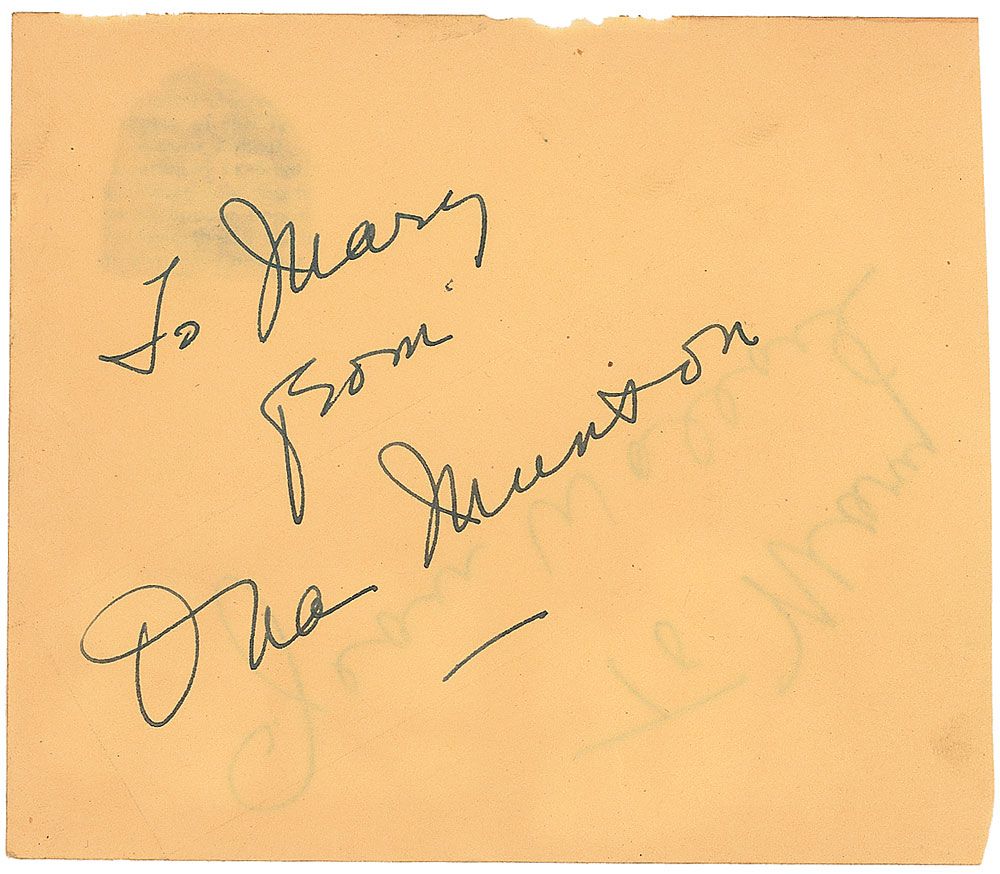 To Mary
from
Ona Munson